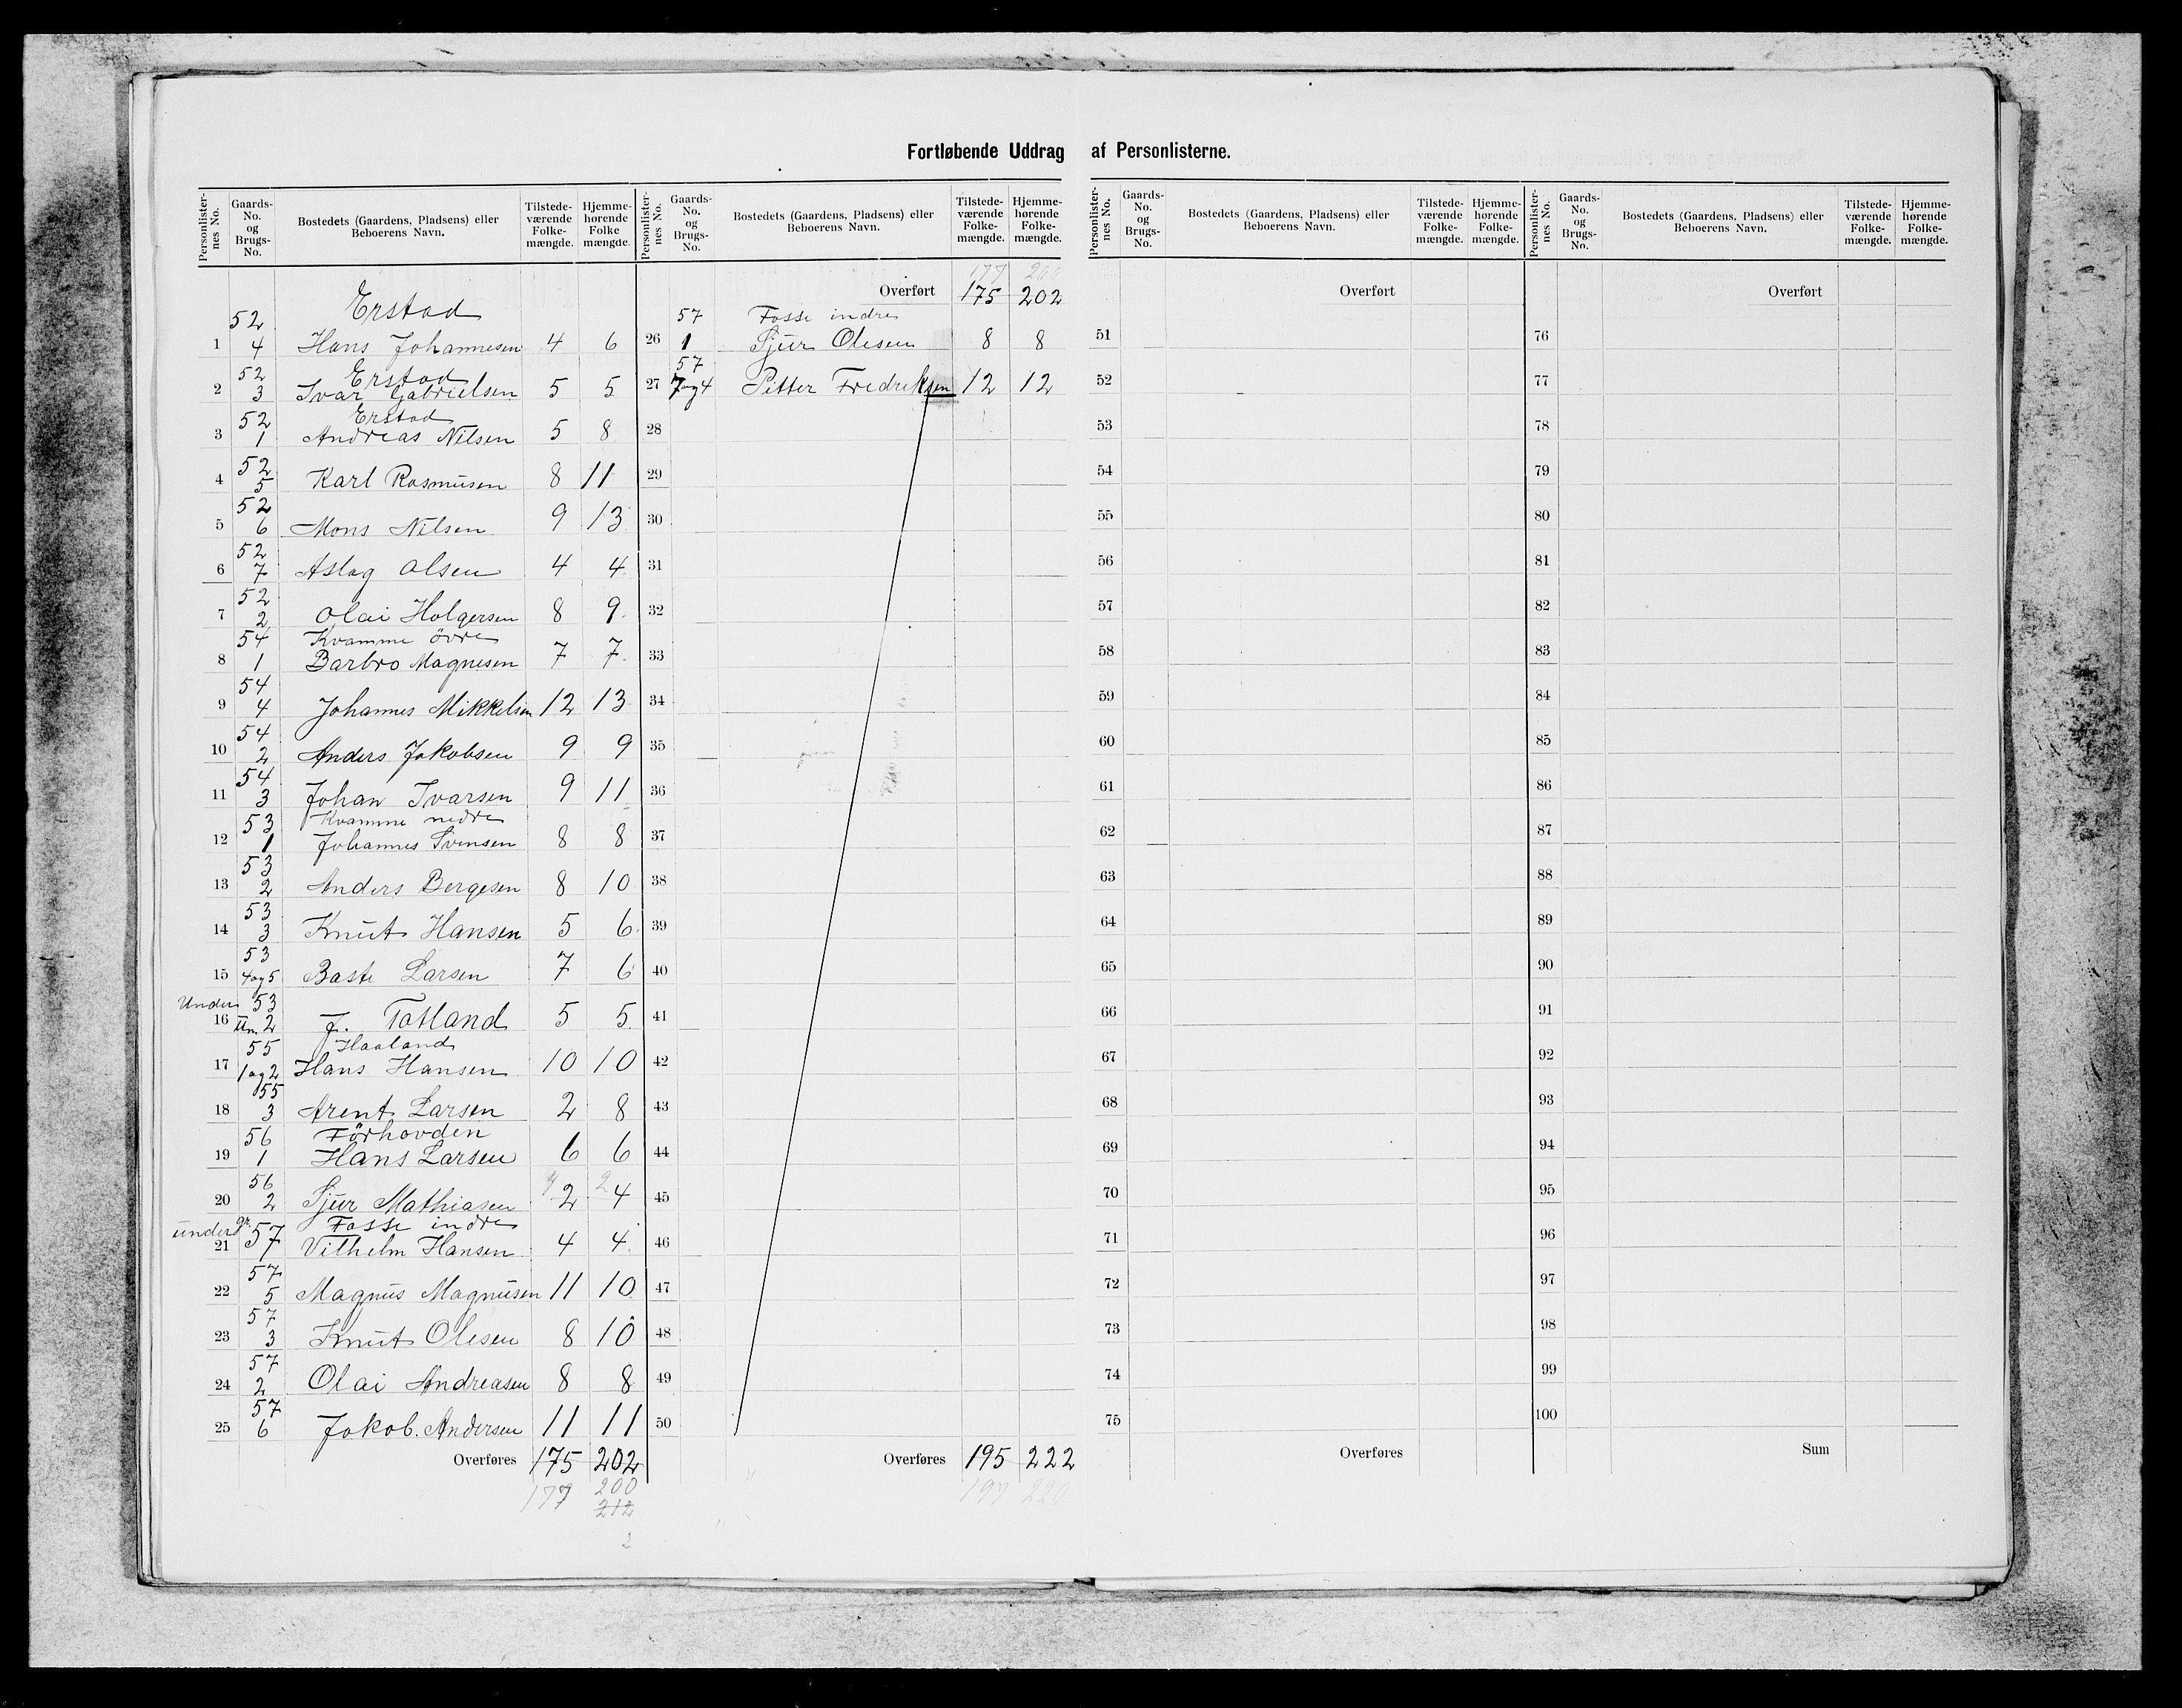 Fortløbende Uddrag af Personlisterne.
Personlister-nes No. | Gaards-No. og Brugs-No. | Bostedets (Gaardens, Pladsens) eller Beboerens Navn. | Tilstede-værende Folke-mængde. | Hjemme-hørende Folke mængde.
52 Erstad
1 4 Hans Johannesen 4 6
52 Erstad
2 3 Ivar Gabrielsen 5 5
52 Erstad
3 1 Andreas Nilsen 5 8
52
4 5 Karl Rasmusen 8 11
52
5 6 Mons Nilsen 9 13
52
6 7 Aslag Olsen 4 4
52
7 2 Olai Holgersen 8 9
54 Kvamme övre
8 1 Barbro Magnesen 7 7
54
9 4 Johannes Mikkelsen 12 13
54
10 2 Anders Jakobsen 9 9
54
11 3 Johan Ivarsen 9 11
53 Kvamme nedre
12 1 Johannes Svensen 8 8
53
13 2 Anders Bergesen 8 10
53
14 3 Knut Hansen 5 6
53
15 4 og 5 Baste Larsen 7 6
Under 53
16 2 J. Totland 5 5
55 Haaland
17 1 og 2 Hans Hansen 10 10
55
18 3 Arent Larsen 2 8
56 Förhovden
19 1 Hans Larsen 6 6
56
20 2 Sjur Mathiasen 4 2 2 4
under gr. 57 Fosse indre
21 1 Vilhelm Hansen 4 4
57
22 5 Magnus Magnusen 11 10
57
23 3 Knut Olesen 8 10
57
24 2 Olai Andreasen 8 8
57
25 6 Jakob Andersen 11 11
Overføres 175 202
177 200
212
2
Personlister-nes No. | Gaards-No. og Brugs-No. | Bostedets (Gaardens, Pladsens) eller Beboerens Navn. | Tilstede-værende Folke-mængde. | Hjemme-hørende Folke-mængde.
177 200
Overført 175 202
57 Fosse indre
26 1 Sjur Olesen 8 8
57
27 7 og 4 Petter Fredriksen 12 12
28
29
30
31
32
33
34
35
36
37
38
39
40
41
42
43
44
45
46
47
48
49
50
Overføres 195 222
197 220
Personlister-nes No. | Gaards-No. og Brugs-No. | Bostedets (Gaardens, Pladsens) eller Beboerens Navn. | Tilstede-værende Folke-mængde. | Hjemme-hørende Folke-mængde.
Overført
51
52
53
54
55
56
57
58
59
60
61
62
63
64
65
66
67
68
69
70
71
72
73
74
75
Overføres
Personlister-nes No. | Gaards-No. og Brugs-No. | Bostedets (Gaardens, Pladsens) eller Beboerens Navn. | Tilstede-værende Folke-mængde. | Hjemme-hørende Folke-mængde.
Overført
76
77
78
79
80
81
82
83
84
85
86
87
88
89
90
91
92
93
94
95
96
97
98
99
100
Sum